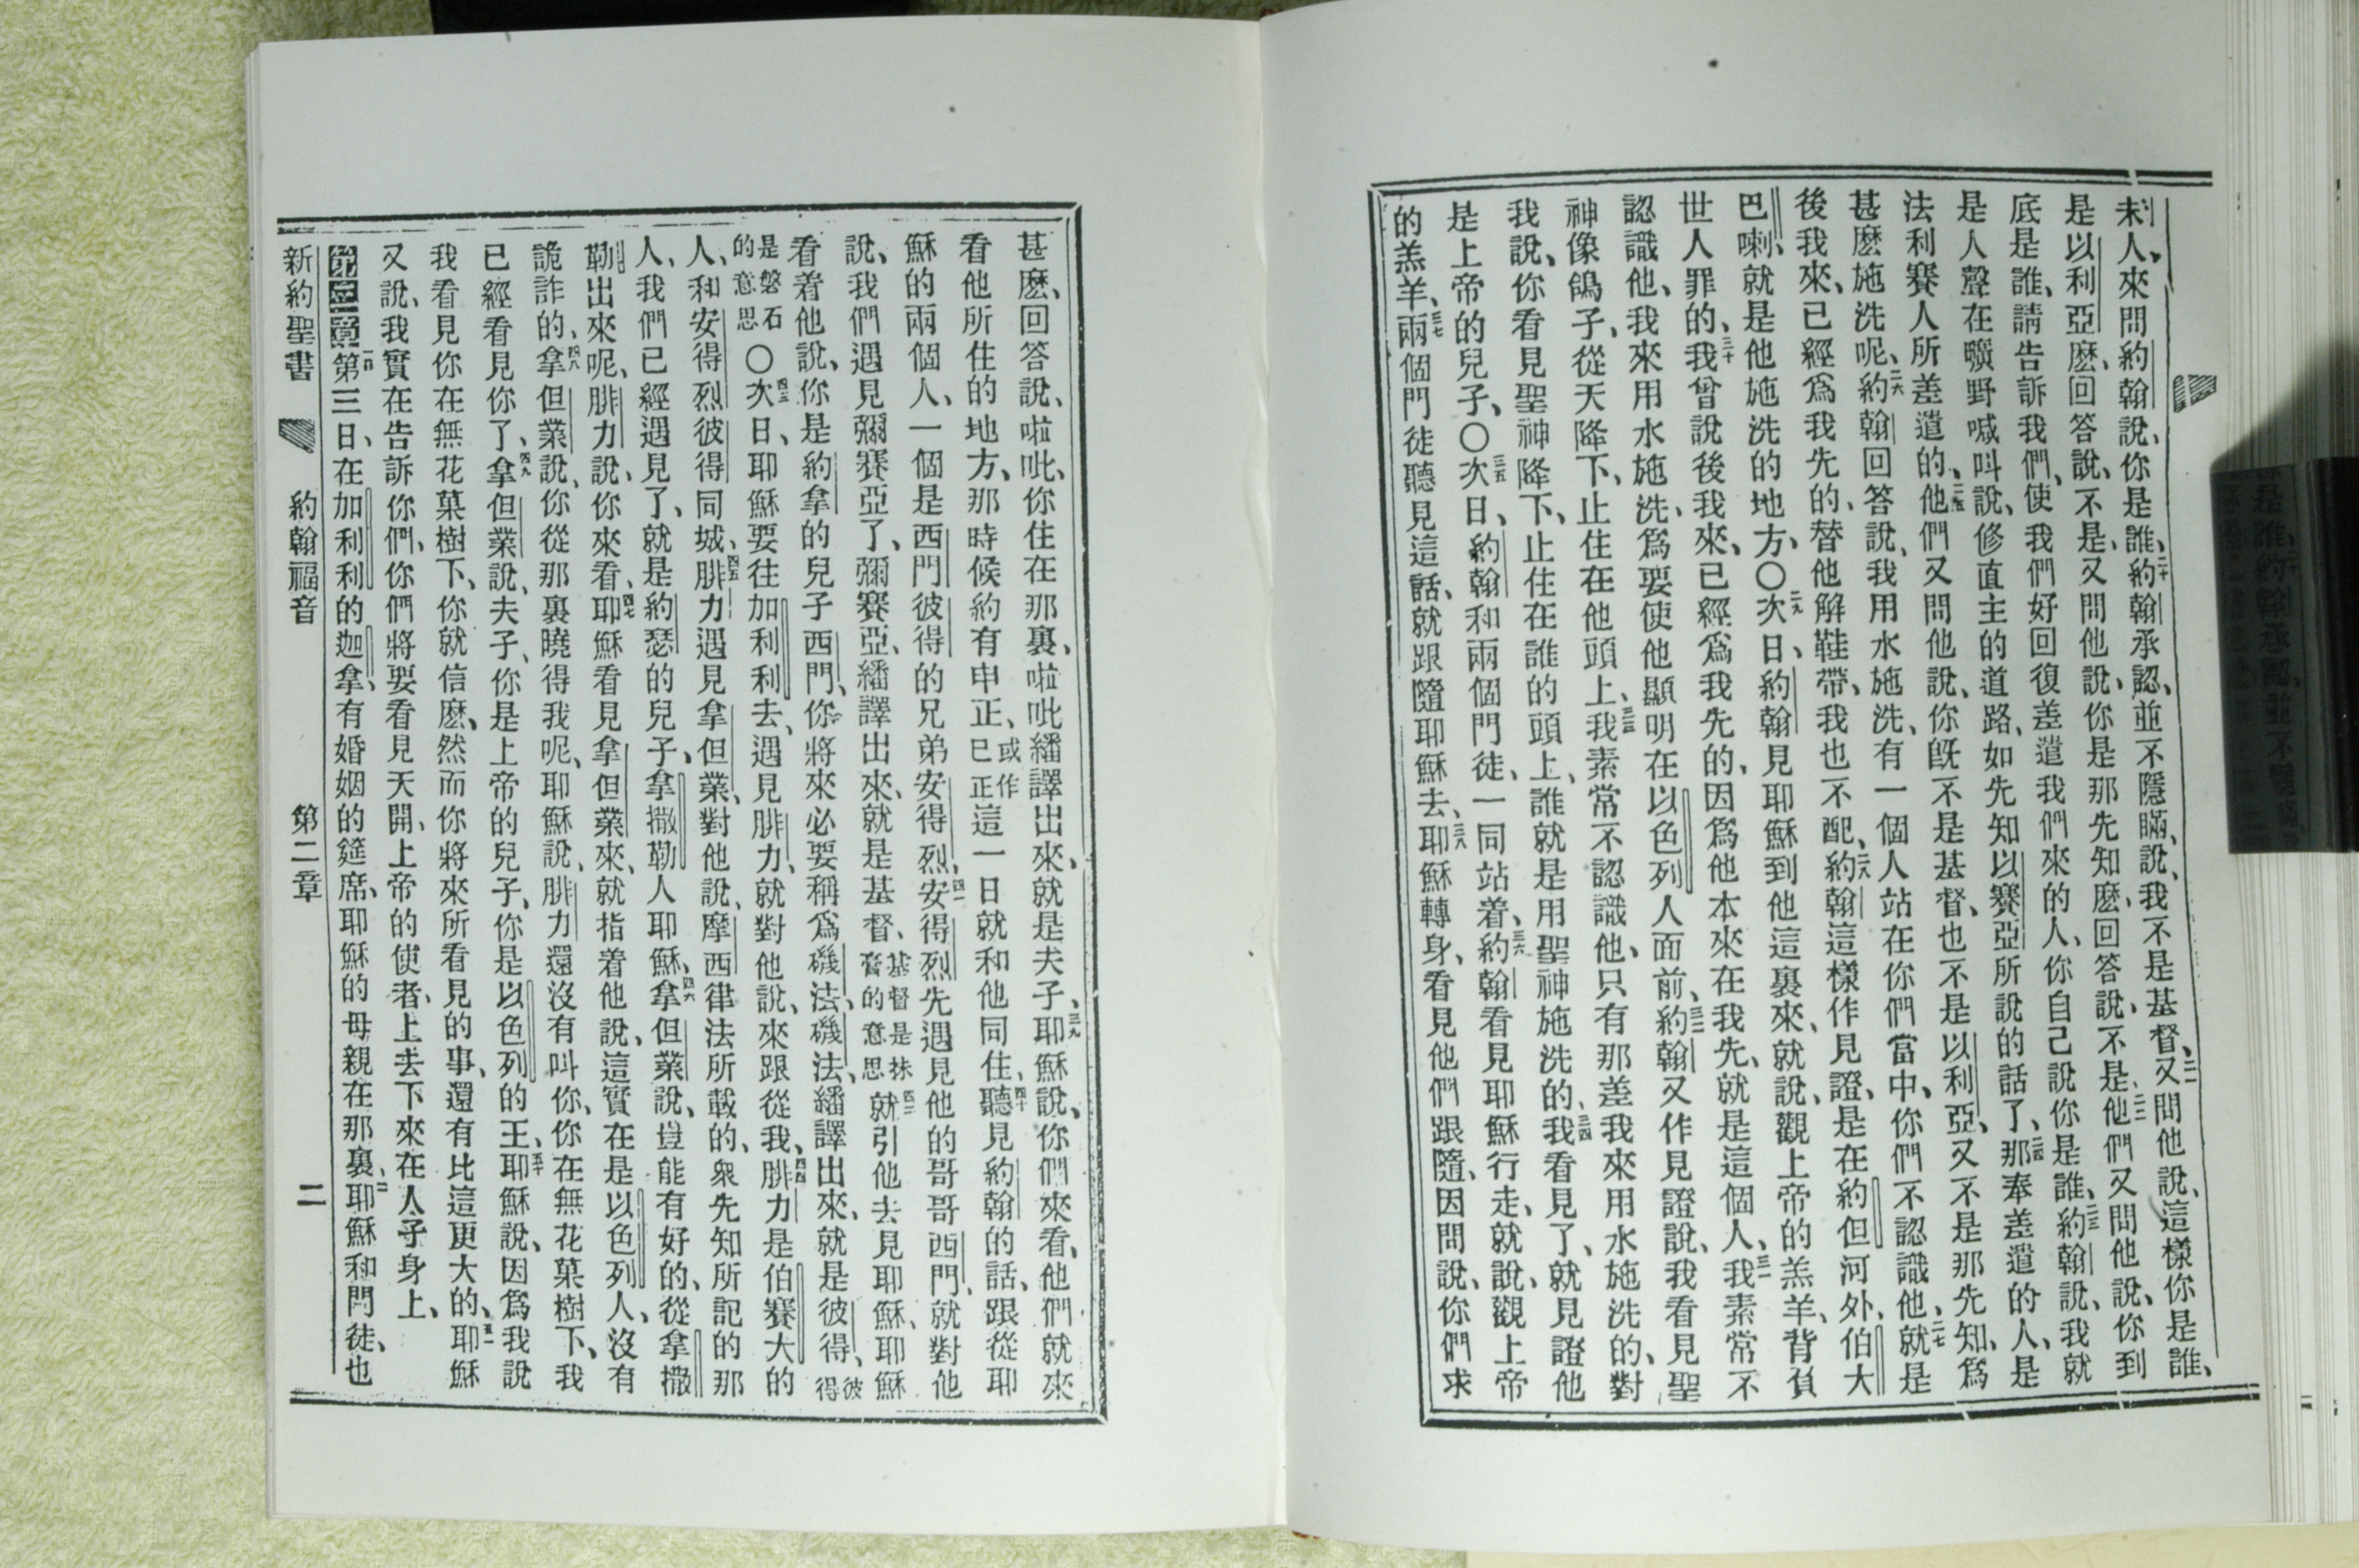 未人、來問約翰說、你是誰、二十約翰承認、並不隱瞞、說、我不是基督、二一又問他說、這樣你是誰、
是以利亞麽、回答說、不是、又問他說、你是那先知麽、回答說、不是、二二他們又問他說、你到
底是誰、請告訴我們、使我們好回復差遣我們來的人、你自己說你是誰、二三約翰說、我就
是人聲在曠野喊叫說、修直主的道路、如先知以賽亞所說的話了、二四那奉差遣的人、是
法利賽人所差遣的、二五他們又問他說、你旣不是基督、也不是以利亞、又不是那先知、爲
甚麽施洗呢、二六約翰回答說、我用水施洗、有一個人站在你們當中、你們不認識他、二七就是
後我來、已經爲我先的、替他解鞋帶、我也不配、二八約翰這樣作見證、是在約但河外、伯大
巴喇、就是他施洗的地方、〇二九次日、約翰見耶穌到他這裏來、就說、觀上帝的羔羊、背負
世人罪的、三十我曾說後我來、已經爲我先的、因爲他本來在我先、就是這個人、三一我素常不
認識他、我來用水施洗、爲要使他顯明在以色列人面前、三二約翰又作見證說、我看見聖
神像鴿子、從天降下、止住在他頭上、三三我素常不認識他、只有那差我來用水施洗的、對
我說、你看見聖神降下、止住在誰的頭上、誰就是用聖神施洗的、三四我看見了、就見證他
是上帝的兒子、〇三五次日、約翰和兩個門徒、一同站着、三六約翰看見耶穌行走、就說、觀上帝
的羔羊、三七兩個門徒聽見這話、就跟隨耶穌去、三八耶穌轉身、看見他們跟隨、因問說、你們求
甚麽、回答說、啦吡、你住在那裏、啦吡繙譯出來、就是夫子、三九耶穌說、你們來看、他們就來
看他所住的地方、那時候約有申正、或作巳正這一日就和他同住、四十聽見約翰的話、跟從耶
穌的兩個人、一個是西門彼得的兄弟安得烈、四一安得烈先遇見他的哥哥西門、就對他
說、我們遇見彌賽亞了、彌賽亞、繙譯出來、就是基督、基督是抹膏的意思四二就引他去見耶穌、耶穌
看着他說、你是約拿的兒子西門、你將來必要稱爲磯法、磯法、繙譯出來、就是彼得、彼得
是磐石的意思〇四三次日、耶穌要往加利利去、遇見腓力、就對他說、來跟從我、四四腓力是伯賽大的
人、和安得烈彼得同城、四五腓力遇見拿但業、對他說、摩西律法所載的、衆先知所記的那
人、我們已經遇見了、就是約瑟的兒子、拿撒勒人耶穌、四六拿但業說、豈能有好的、從拿撒
勒出來呢、腓力說、你來看、四七耶穌看見拿但業來、就指着他說、這實在是以色列人、沒有
詭詐的、四八拿但業說、你從那裏曉得我呢、耶穌說、腓力還沒有叫你、你在無花菓樹下、我
已經看見你了、四九拿但業說、夫子、你是上帝的兒子、你是以色列的王、五十耶穌說、因爲我說
我看見你在無花菓樹下、你就信麽、然而你將來所看見的事、還有比這更大的、五一耶穌
又說、我實在告訴你們、你們將要看見天開、上帝的使者、上去下來在人子身上、
第二章一第三日、在加利利的迦拿、有婚姻的筵席、耶穌的母親在那裏、二耶穌和門徒、也
新約聖書 約翰福音 第二章 二